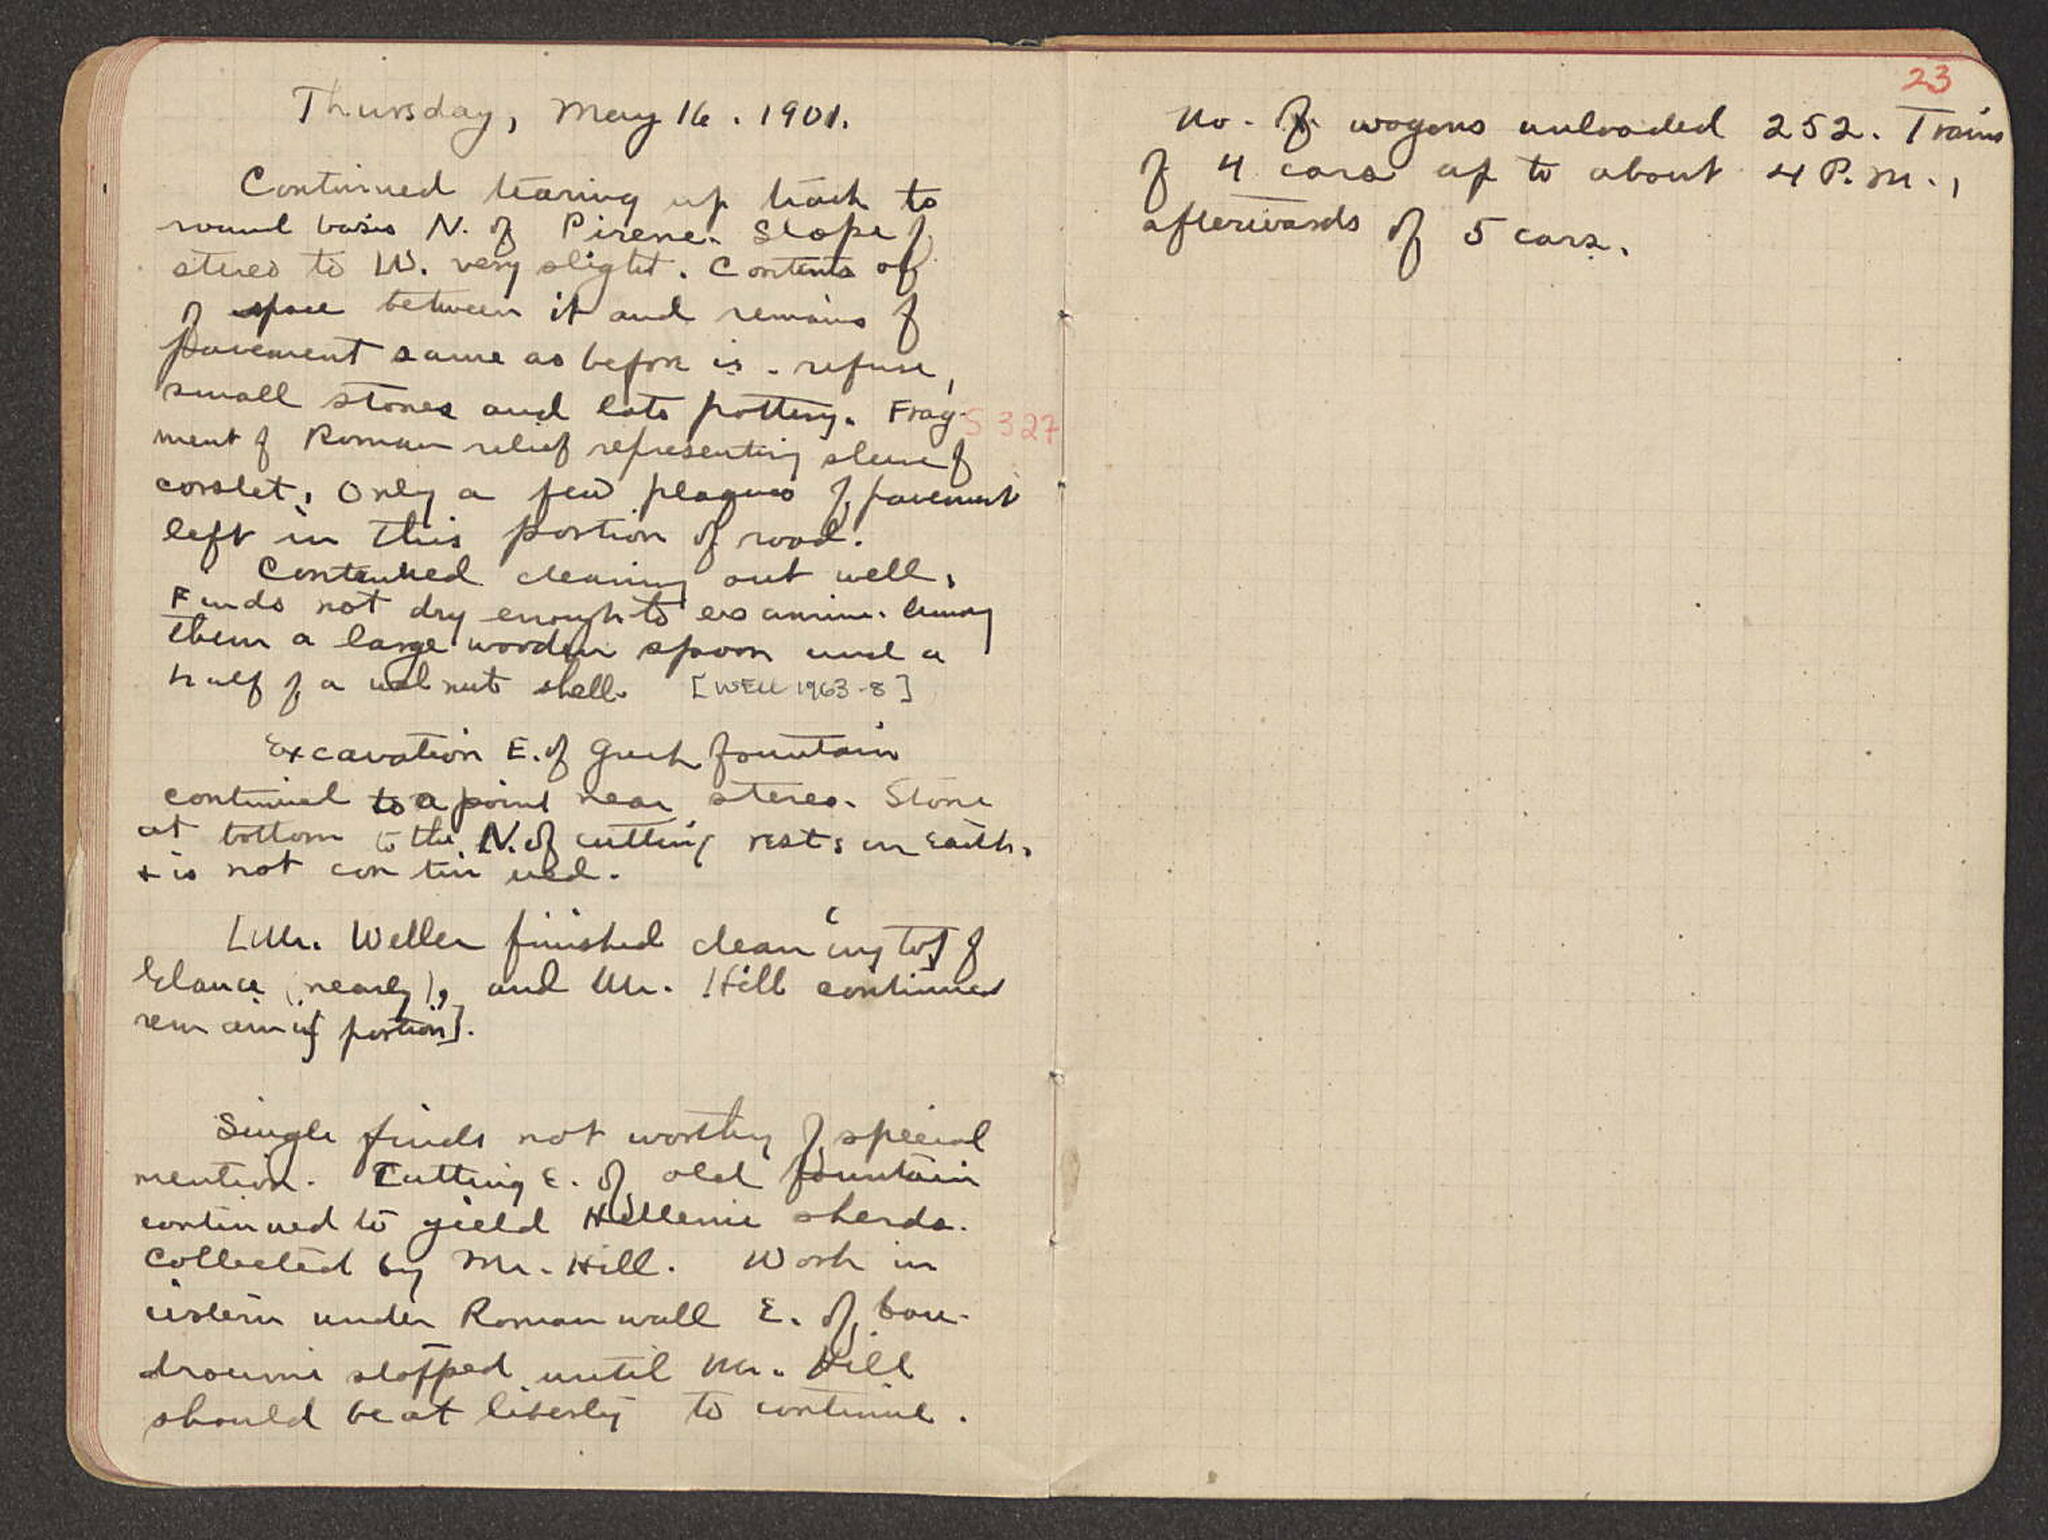 Thursday, May 16. 1901.
Continued tearing up track to
round basis N. of Pirene. Slope of
stereo to W. very slight. Contents of
of space between it and remains of
pavement same as before is - refuse,
small stones and late pottery. Frag- S 327
ment of Roman relief representing sleeve of
corslet. Only a few plaques of pavement
left in this portion of road.
Contenued clearing out well.
Finds not dry enough to examine. Among
them a large wooden spoon and a
half of a walnut shell. [WELL 1963-8]
Excavation E. of Greek fountain
continued to a point near stereo. Stone
at bottom to the N. of cutting rests on Earth.
+ is not continued.
[Mr. Weller finished cleaning top of
Glauce (nearly), and Mr. Hill continued
remaining portion].
Single finds not worthy of special
mention. Cutting E. of old fountain
continued to yield Hellenic sherds.
Collected by Mr. Hill. Work in
cistern under Roman wall E. of bou-
droumi stopped until Mr. Hill
should be at liberty to continue.
23
No. of wagons unloaded 252. Trains
of 4 cars up to about 4 P.M.,
afterwards of 5 cars.